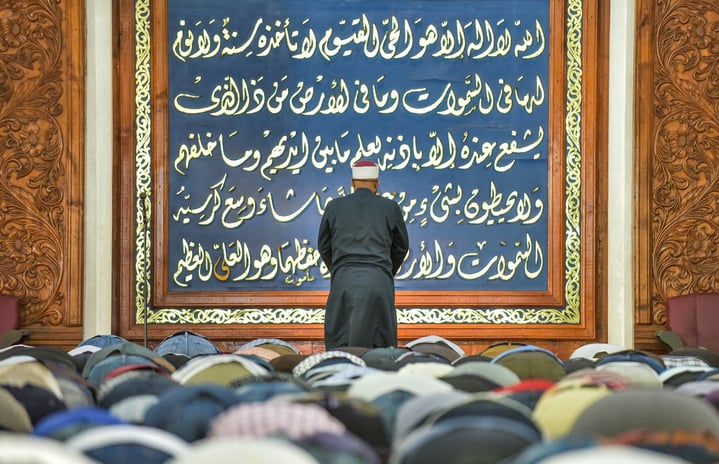 الله لا اله الا هو الحي القيوم لا تأخذه سنة ولا نوم
له ما في السموات وما في الارض من ذا الذي
يشفع عنده الا باذنه يعلم ما بين ايديهم وما خلفهم
ولا يحيطون بشيء شاء وسع كرسيه
السموات حفظهما وهو العلي العظيم